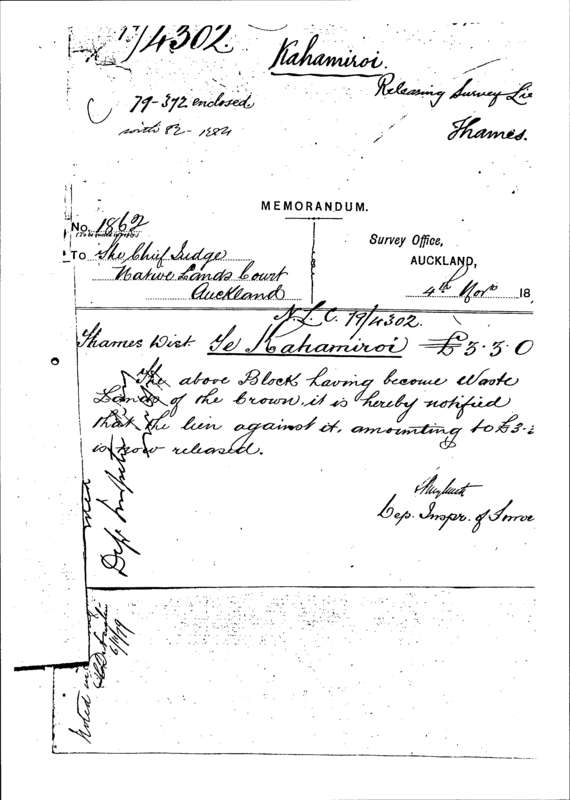 79/4302.
Kahamiroi.
Releasing Survey Lie
Thames.
79-372 enclosed
with 82-1884
MEMORANDUM.
No. 1862
Survey Office,
AUCKLAND,
To The Chief Judge
Native Lands Court
Auckland
4th Novr 18
N.L.C. 79/4302.
Thames Dist Te Kahamiroi £3.3.0
The above Block having become Waste
Lands of the Crown, it is hereby notified
that the lien against it, amounting to £3.
is now released.
Dep. Inspr. of Surve
Dep. Inspector
Noted in
6/11/79